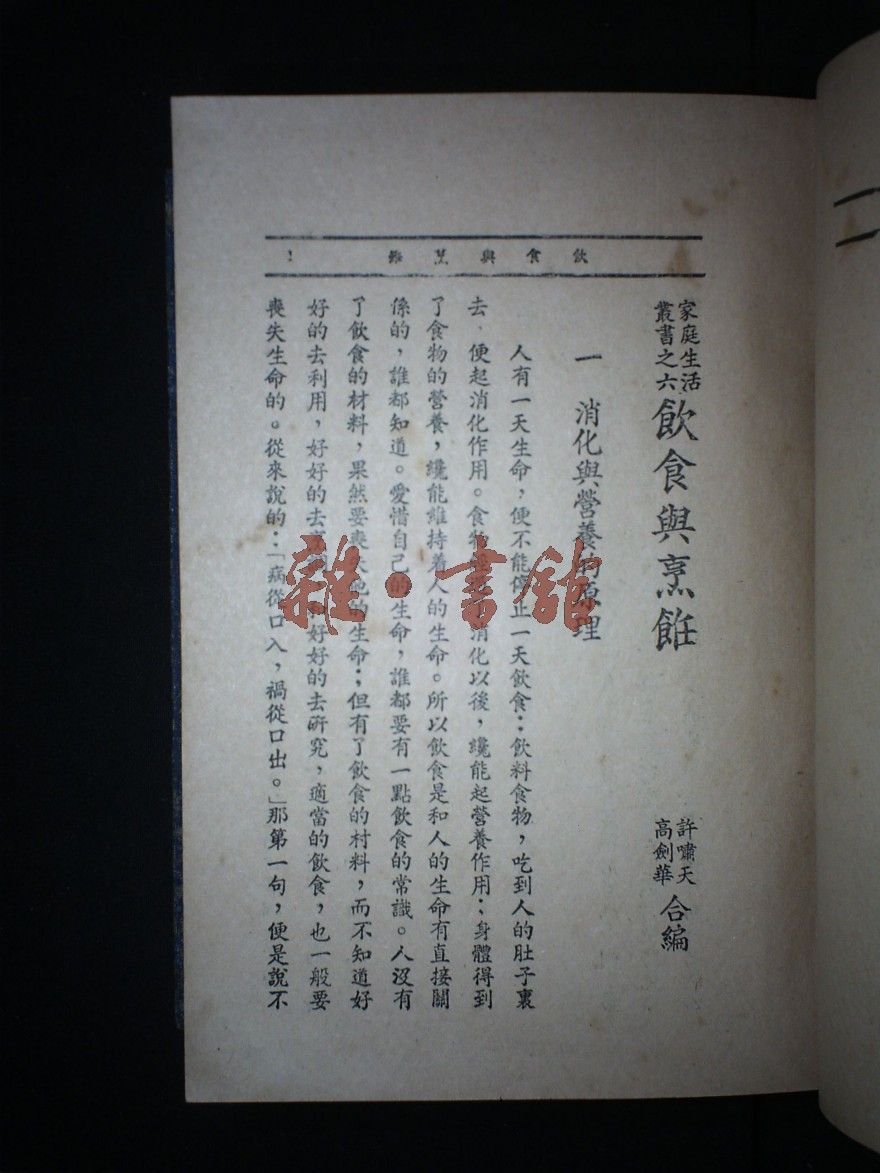 飲食與烹飪 1
家庭生活
叢書之六
飲食與烹飪
許嘯天
高劍華
合編
一 消化與營養的原理
人有一天生命,便不能停止一天飲食:飲料食物,吃到人的肚子裏
去,便起消化作用。食物 消化以後,纔能起營養作用:身體得到
了食物的營養,纔能維持着人的生命。所以飲食是和人的生命有直接關
係的,誰都知道。愛惜自己的生命,誰都要有一點飲食的常識。人沒有
了飲食的材料,果然要喪失他的生命;但有了飲食的材料,而不知道好
好的去利用,好好的去 好好的去研究,適當的飲食,也一般要
喪失生命的。從來說的:「病從口入,禍從口出。」那第一句,便是說不
雜·書館